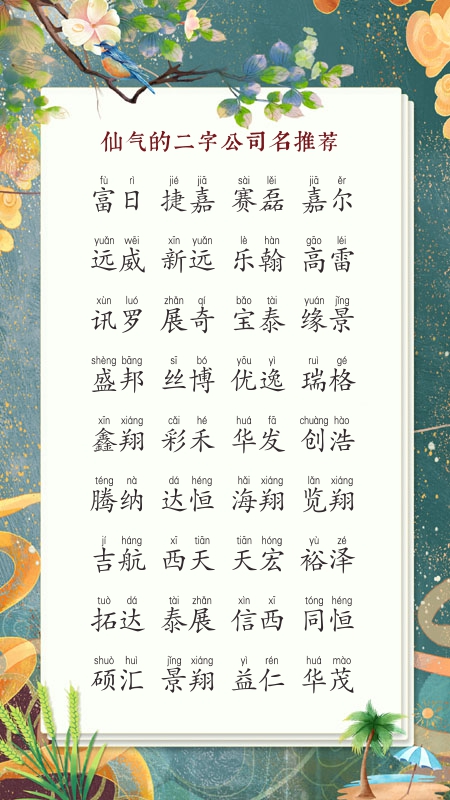 仙气的二字公司名推荐
fù rì jié jiā sài lěi jiā ěr
富日 捷嘉 赛磊 嘉尔
yuǎn wēi xīn yuǎn lè hàn gāo léi
远威 新远 乐翰 高雷
xùn luó zhǎn qí bǎo tài yuán jǐng
讯罗 展奇 宝泰 缘景
shèng bāng sī bó yōu yì ruì gé
盛邦 丝博 优逸 瑞格
xīn xiáng cǎi hé huá fā chuàng hào
鑫翔 彩禾 华发 创浩
téng nà dá héng hǎi xiáng lǎn xiáng
腾纳 达恒 海翔 览翔
jí háng xī tiān tiān hóng yù zé
吉航 西天 天宏 裕泽
tuò dá tài zhǎn xìn xī tóng héng
拓达 泰展 信西 同恒
shuò huì jǐng xiáng yì rén huá mào
硕汇 景翔 益仁 华茂